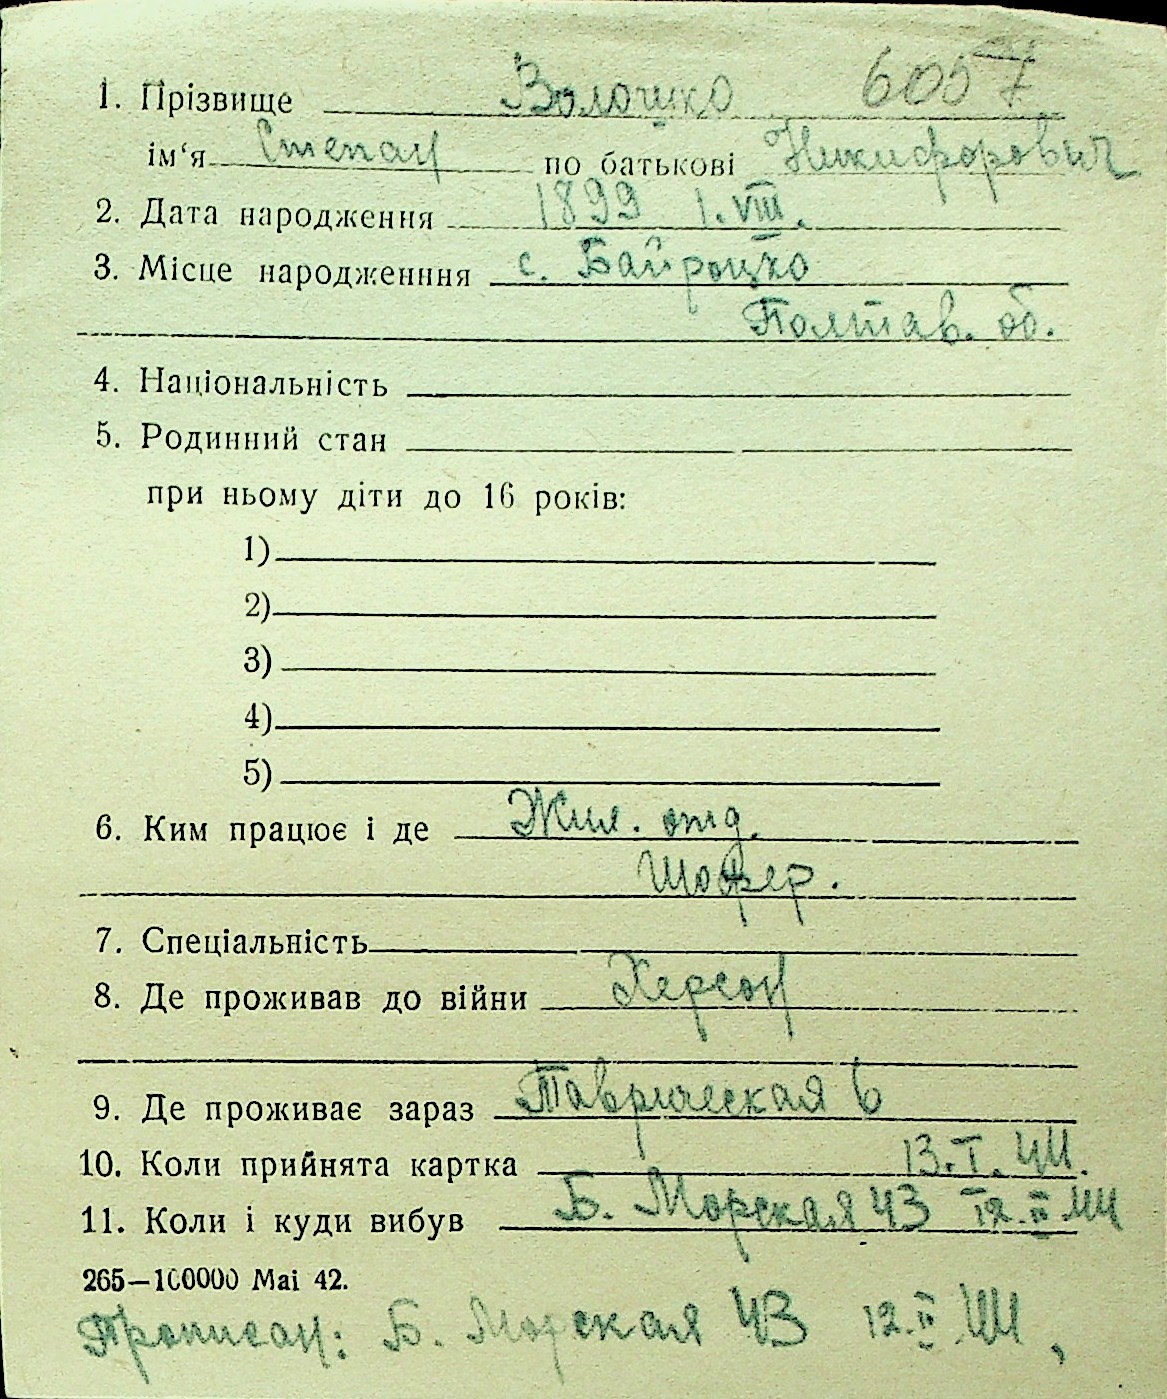 1. Прізвище Волошко 6057
ім‘я Степан по батькові Никифорович
2. Дата народження 1899 1.VIII.
3. Місце народженння с. Байрацко
Полтав. об.
4. Національність
5. Родинний стан
при ньому діти до 16 років:
1)
2)
3)
4)
5)
6. Ким працює і де Жил. отд.
Шофер.
7. Спеціальність
8. Де проживав до війни Херсон
9. Де проживає зараз Таврическая 6
10. Коли прийнята картка 13.I.44.
11. Коли і куди вибув Б. Морская 43 12.II.44
265—100000 Mai 42.
Прописан: Б. Морская 43 12.II.44,